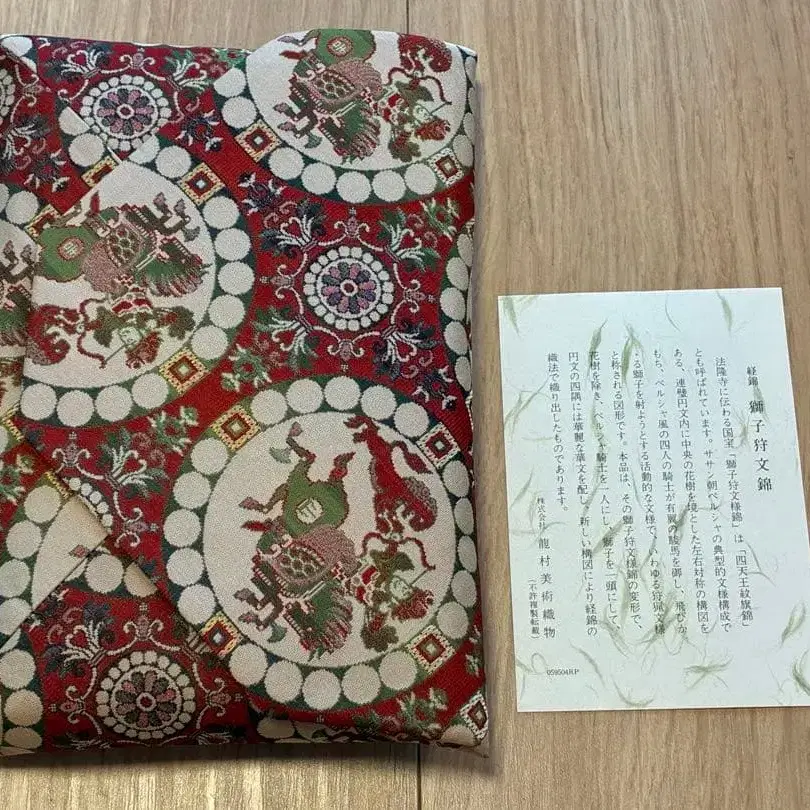 経錦 獅子狩文錦
法隆寺に伝わる国宝「獅子狩文様錦」は「四天王紋旗錦」
とも呼ばれています。ササン朝ペルシャの典型的文様構成で
ある、連璧円文内に中央の花樹を境とした左右対称の構図を
もち、ペルシャ風の四人の騎士が有翼の駿馬を御し、飛びか
る獅子を射ようとする活動的な文様で、いわゆる狩猟文様
と称される図形です。本品は、その獅子狩文様錦の変形で、
花樹を除き、ペルシャ騎士を一人にし、獅子を一頭にして、
円文の四隅には華麗な華文を配し、新しい構図により経錦の
織法で織り出したものであります。
株式会社 龍村美術織物
(不許複製転載)
059504RP